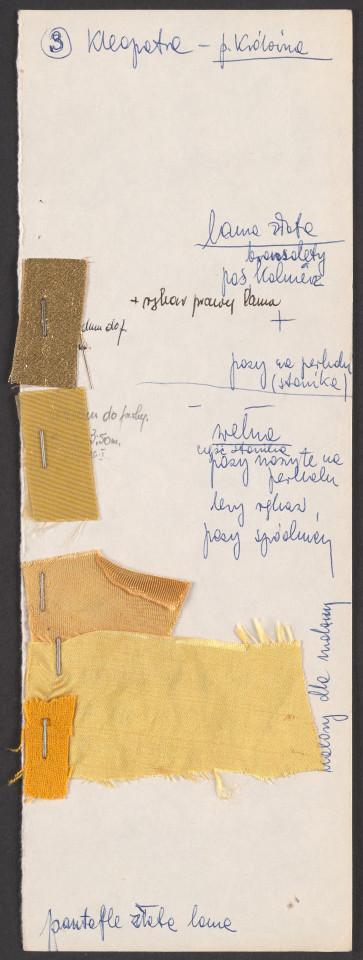 ③ Kleopatra – p. Królowa
lama złota
bransolety
pas kołnierz
+ rękaw prawy lama
+
pasy na perkalu
(stanika)
do farby.
3.50m.
–
wełna
część stanika
pasy naszyte na
perkalu
lewy rękaw
pasy spódnicy
malowany dla
pantofle złota lama